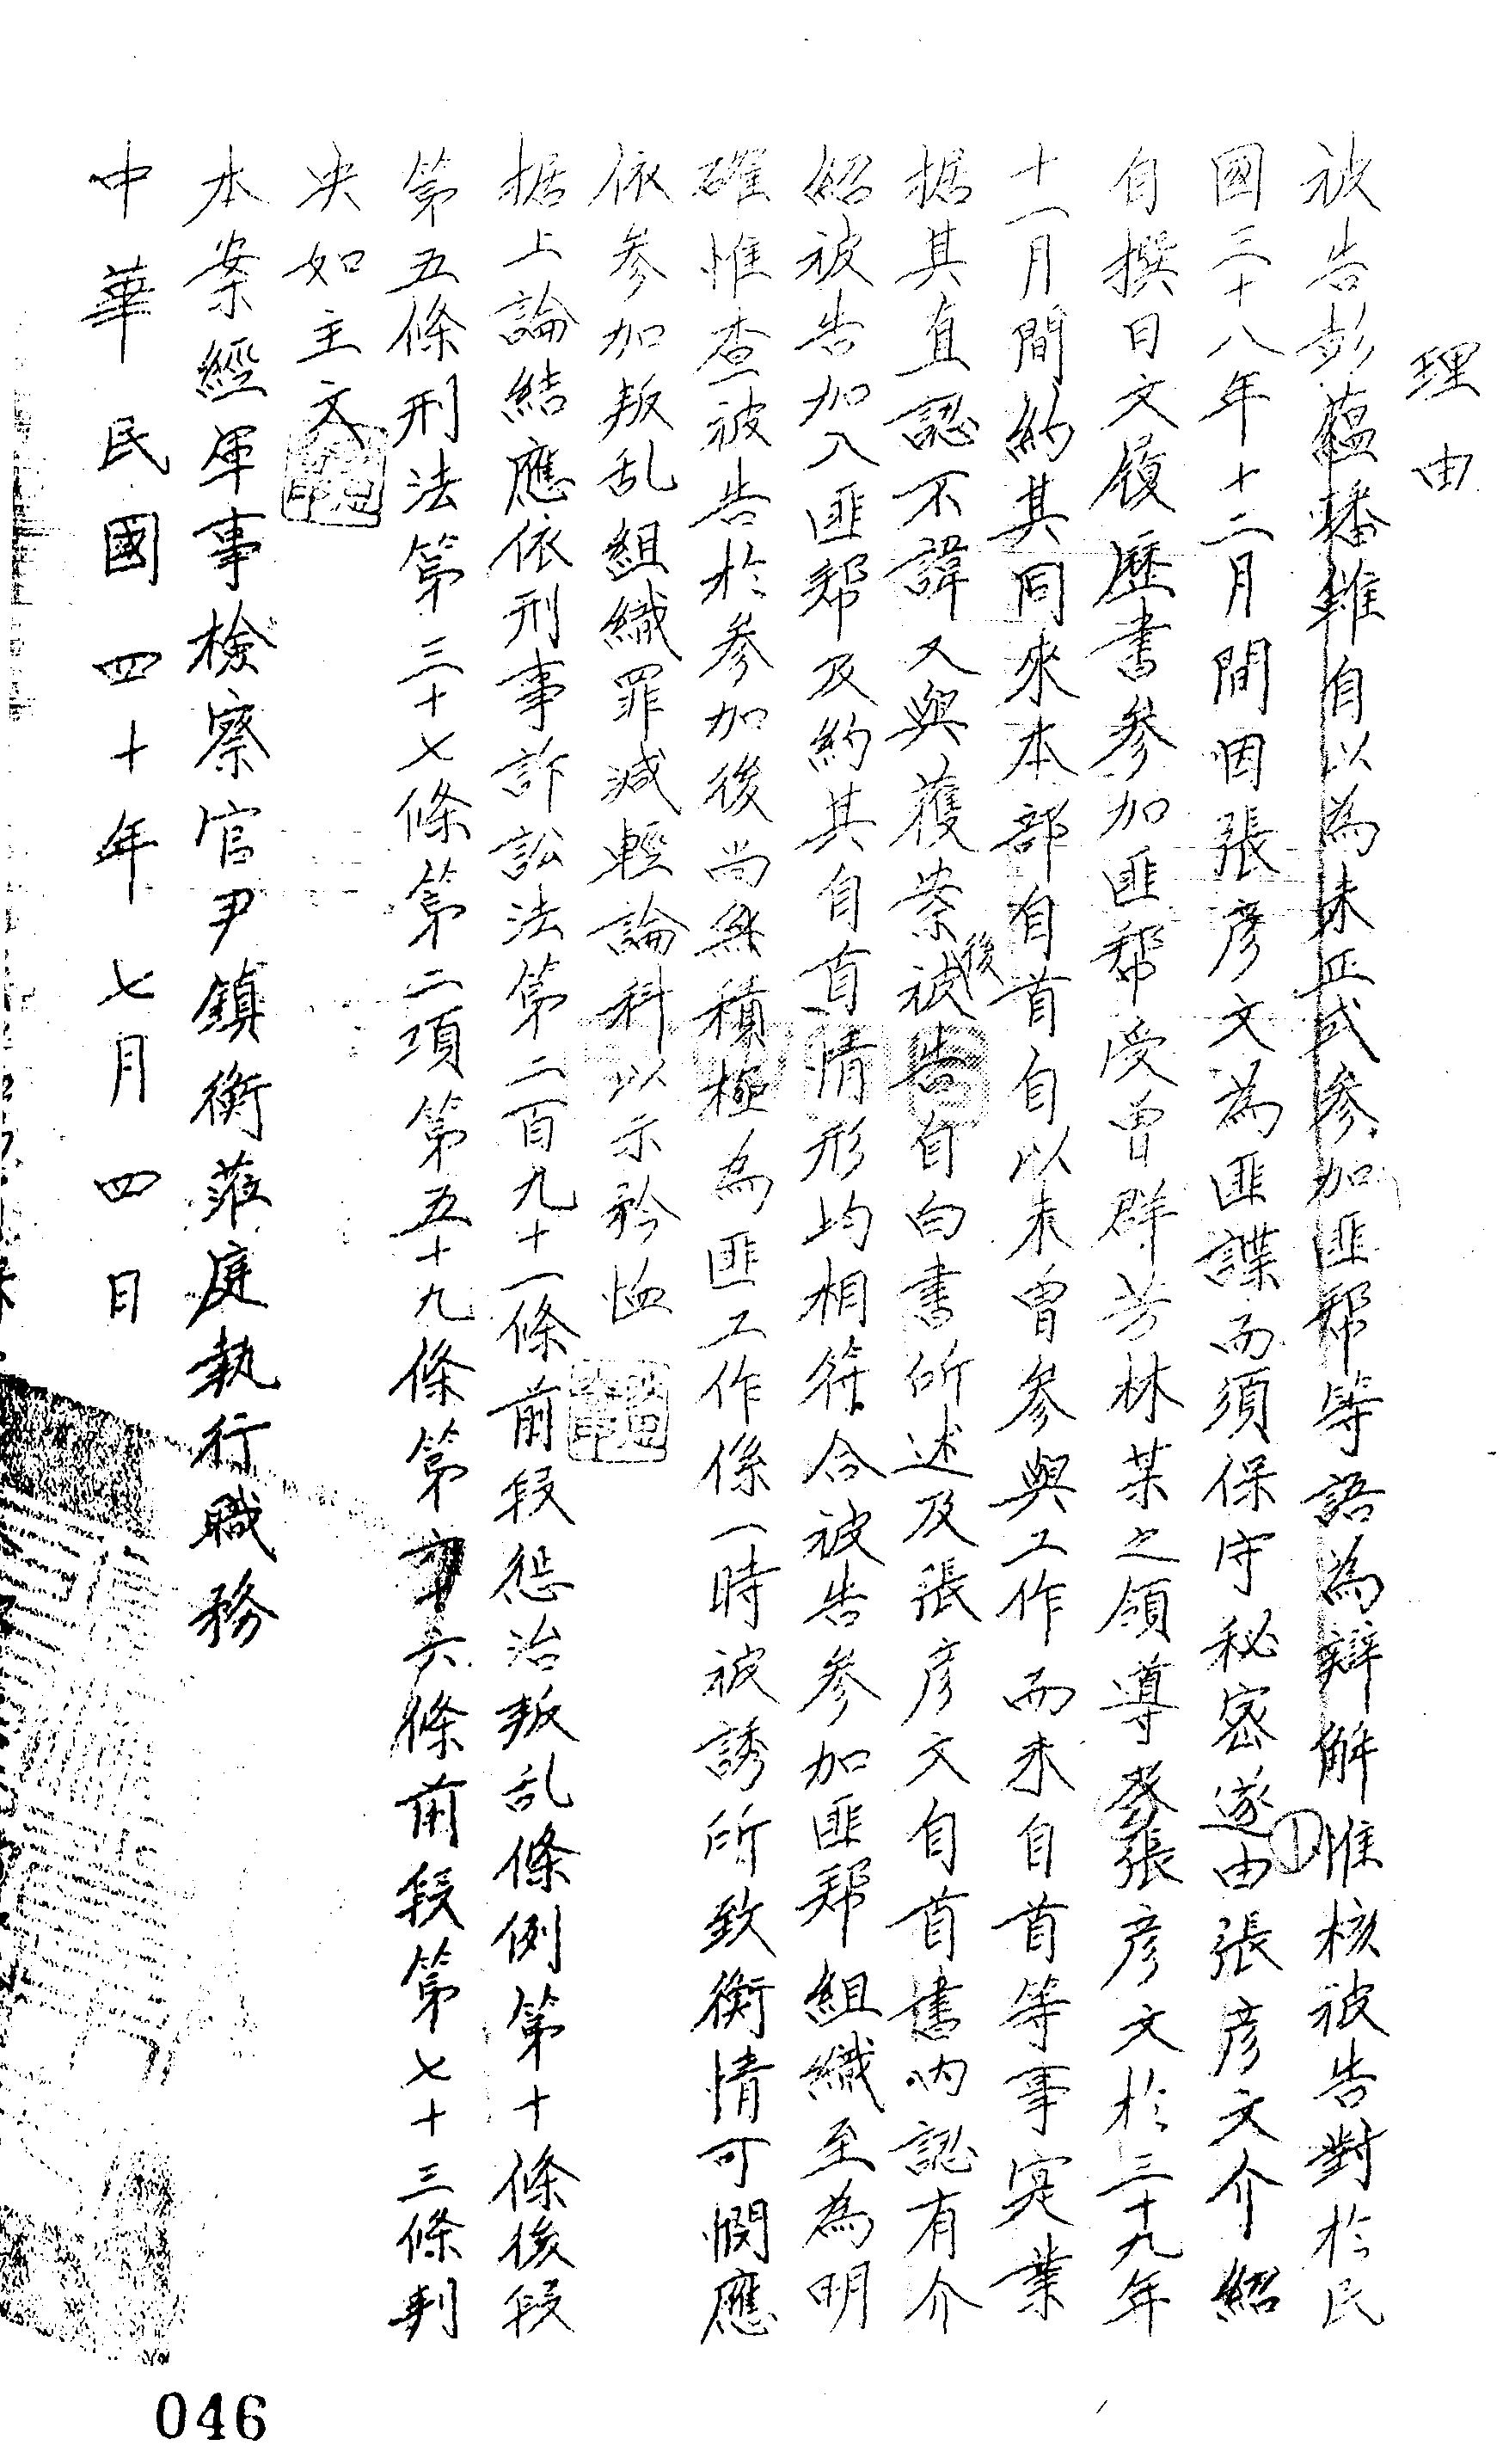 理由
被告彭蘊璠雖自以為未正式參加匪幫等語為辯解惟核被告對於民
國三十八年十二月間因張彥文為匪諜而須保守秘密遂由張彥文介紹
自撰日文履歷書參加匪幫受曾群芳林某之領導張彥文於三十九年
十一月間約其同來本部自首自以未曾參與工作而未自首等事实業
据其直認不諱又與獲案後被告自白書所述及張彥文自首書內認有介
紹被告加入匪幫及約其自首情形均相符合被告參加匪幫組織至為明
確惟查被告於參加後尚無積極為匪工作係一時被誘所致衡情可憫應
依參加叛乱組織罪減輕論科以示矜恤
据上論結應依刑事訴訟法第二百九十一條前段惩治叛乱條例第十條後段
第五條刑法第三十七條第二項第五十九條第六條前段第七十三條判
决如主文
本案經軍事檢察官尹鎮衡蒞庭執行職務
中華民國四十年七月四日
①
046